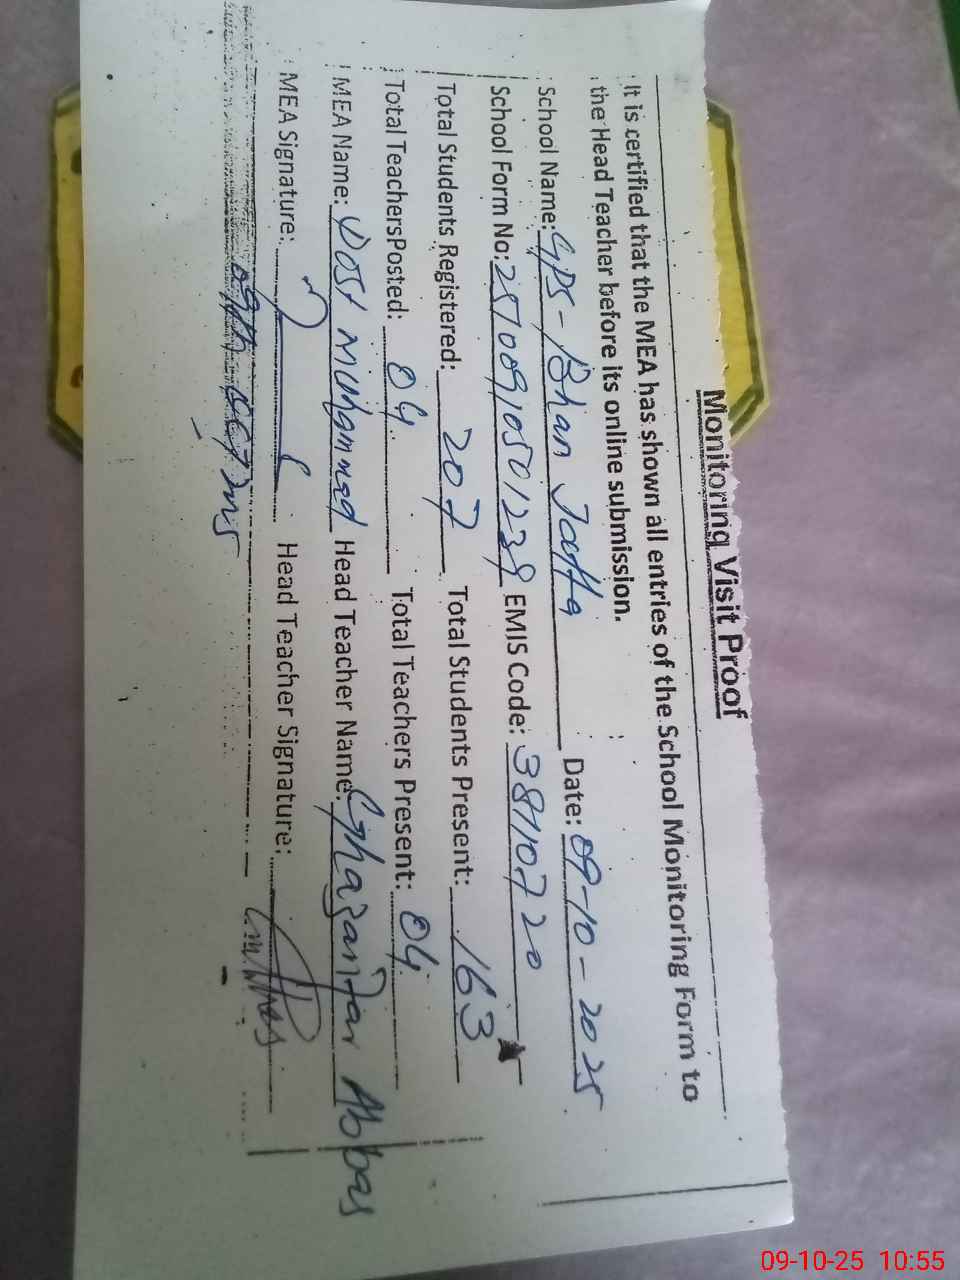 Monitoring Visit Proof
It is certified that the MEA has shown all entries of the School Monitoring Form to
the Head Teacher before its online submission.
School Name: GPS - Bhan Jatta Date: 09-10-2025
School Form No: EMIS Code: 38110720
Total Students Registered: 207 Total Students Present: 163
Total TeachersPosted: 04 Total Teachers Present: 04
MEA Name: Dost Muhammad Head Teacher Name: Ghazanfar Abbas
MEA Signature: Head Teacher Signature:
09-10-25 10:55